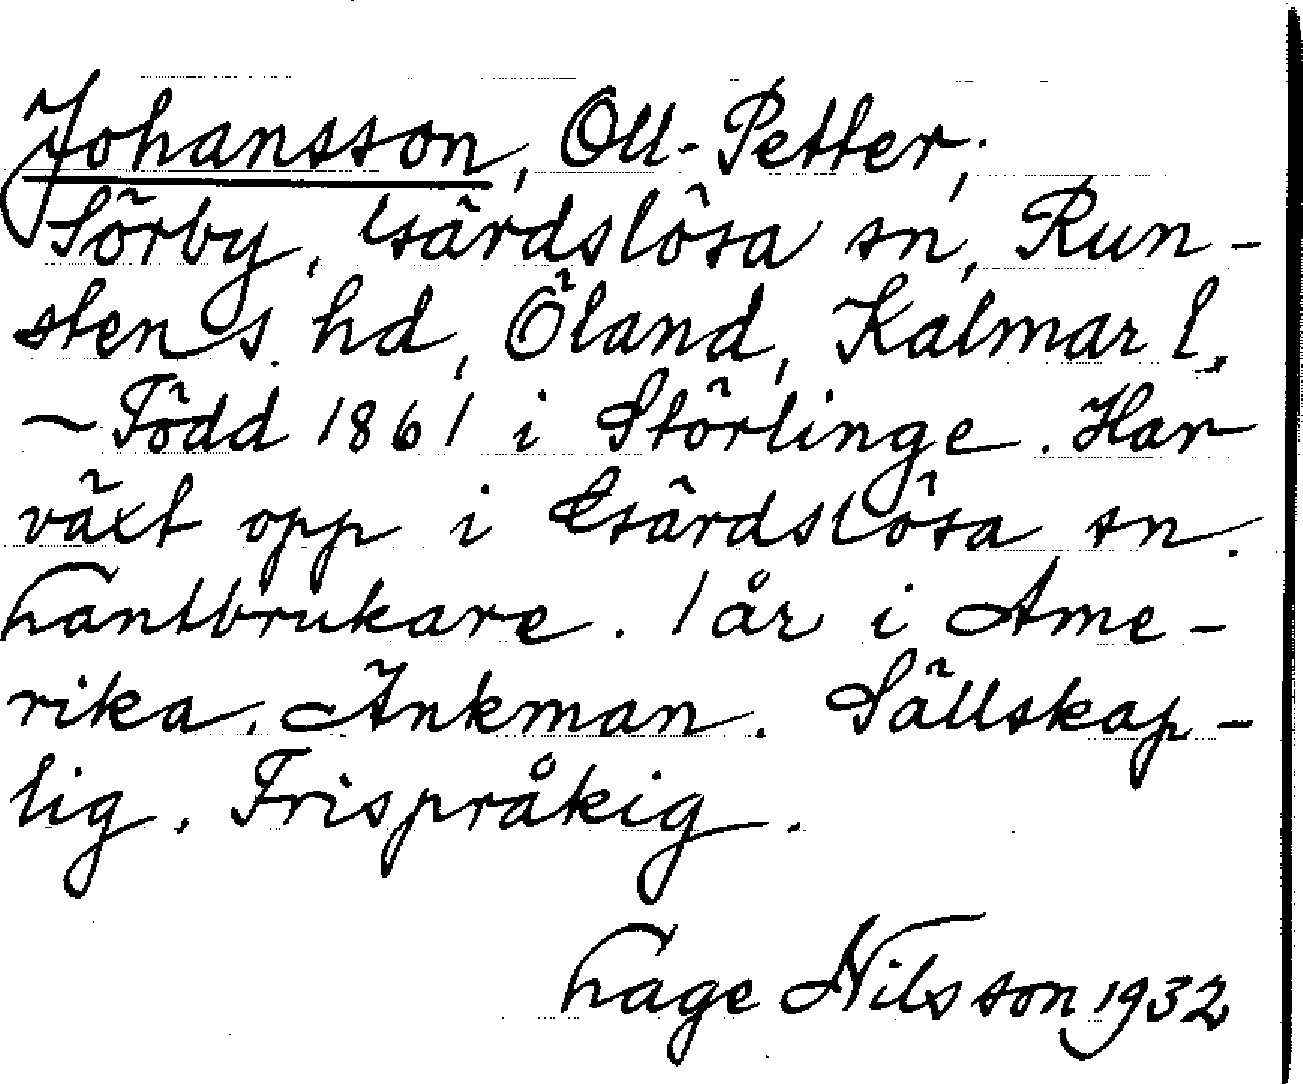 Johansson, Oll-Petter,
Sörby, Gärdslösa sn, Run-
stens hd, Öland, Kalmar l.
~ Född 1861 i Störlinge. Har
växt opp i Gärdslösa sn.
Lantbrukare. 1 år i Ame-
rika. Änkman. Sällskap-
lig. Frispråkig.
Lage Nilsson 1932